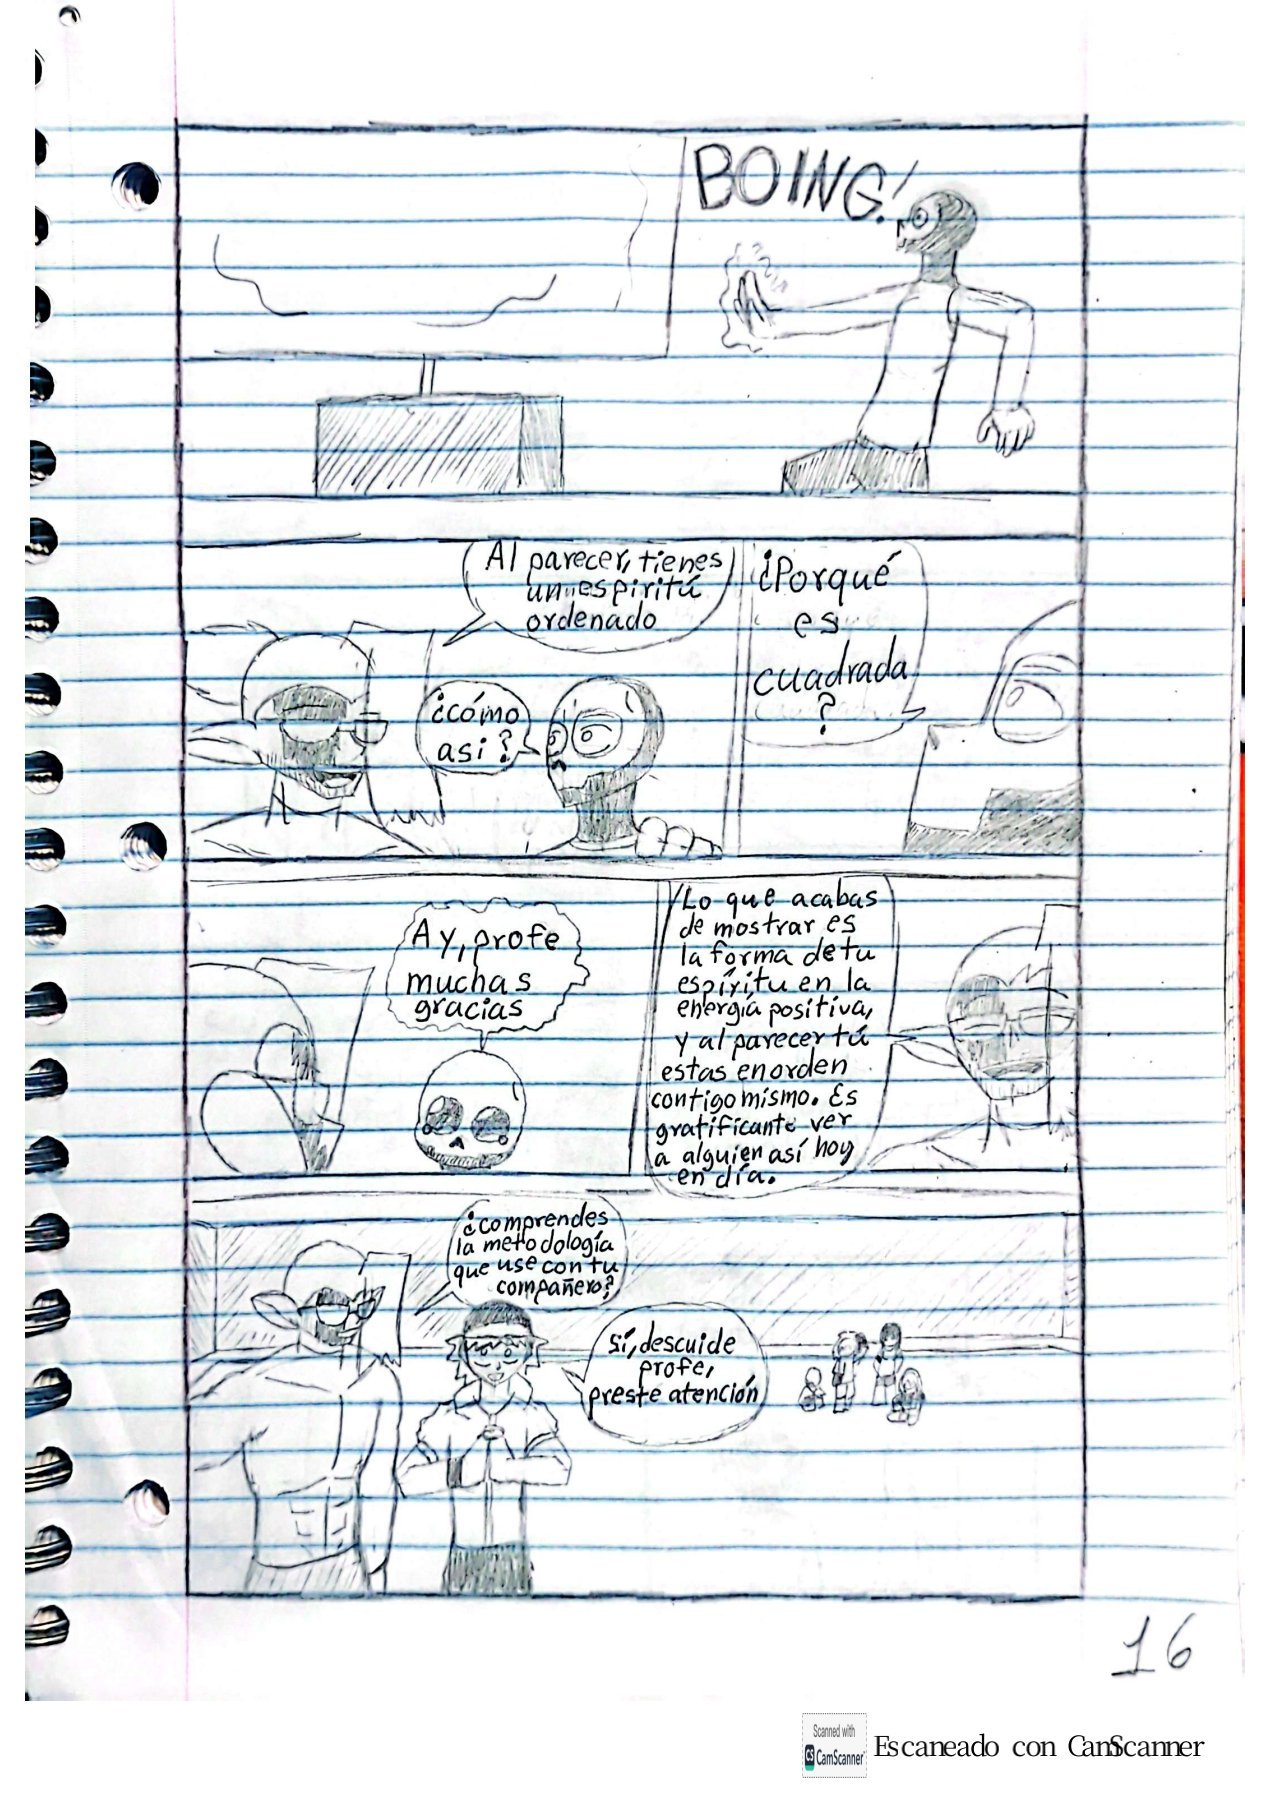 BOING!
Al parecer, tienes
un espiritú
ordenado
¿cómo
asi?
¿Porqué
es
cuadrada
?
Ay, profe
muchas
gracias
Lo que acabas
de mostrar es
la forma de tu
espíritu en la
energía positiva,
y al parecer tú
estas en orden
contigo mismo. Es
gratificante ver
a alguien así hoy
en día.
¿comprendes
la metodología
que use con tu
compañero?
Sí, descuide
profe,
preste atención
16
Scanned with
CS CamScanner
Escaneado con CamScanner